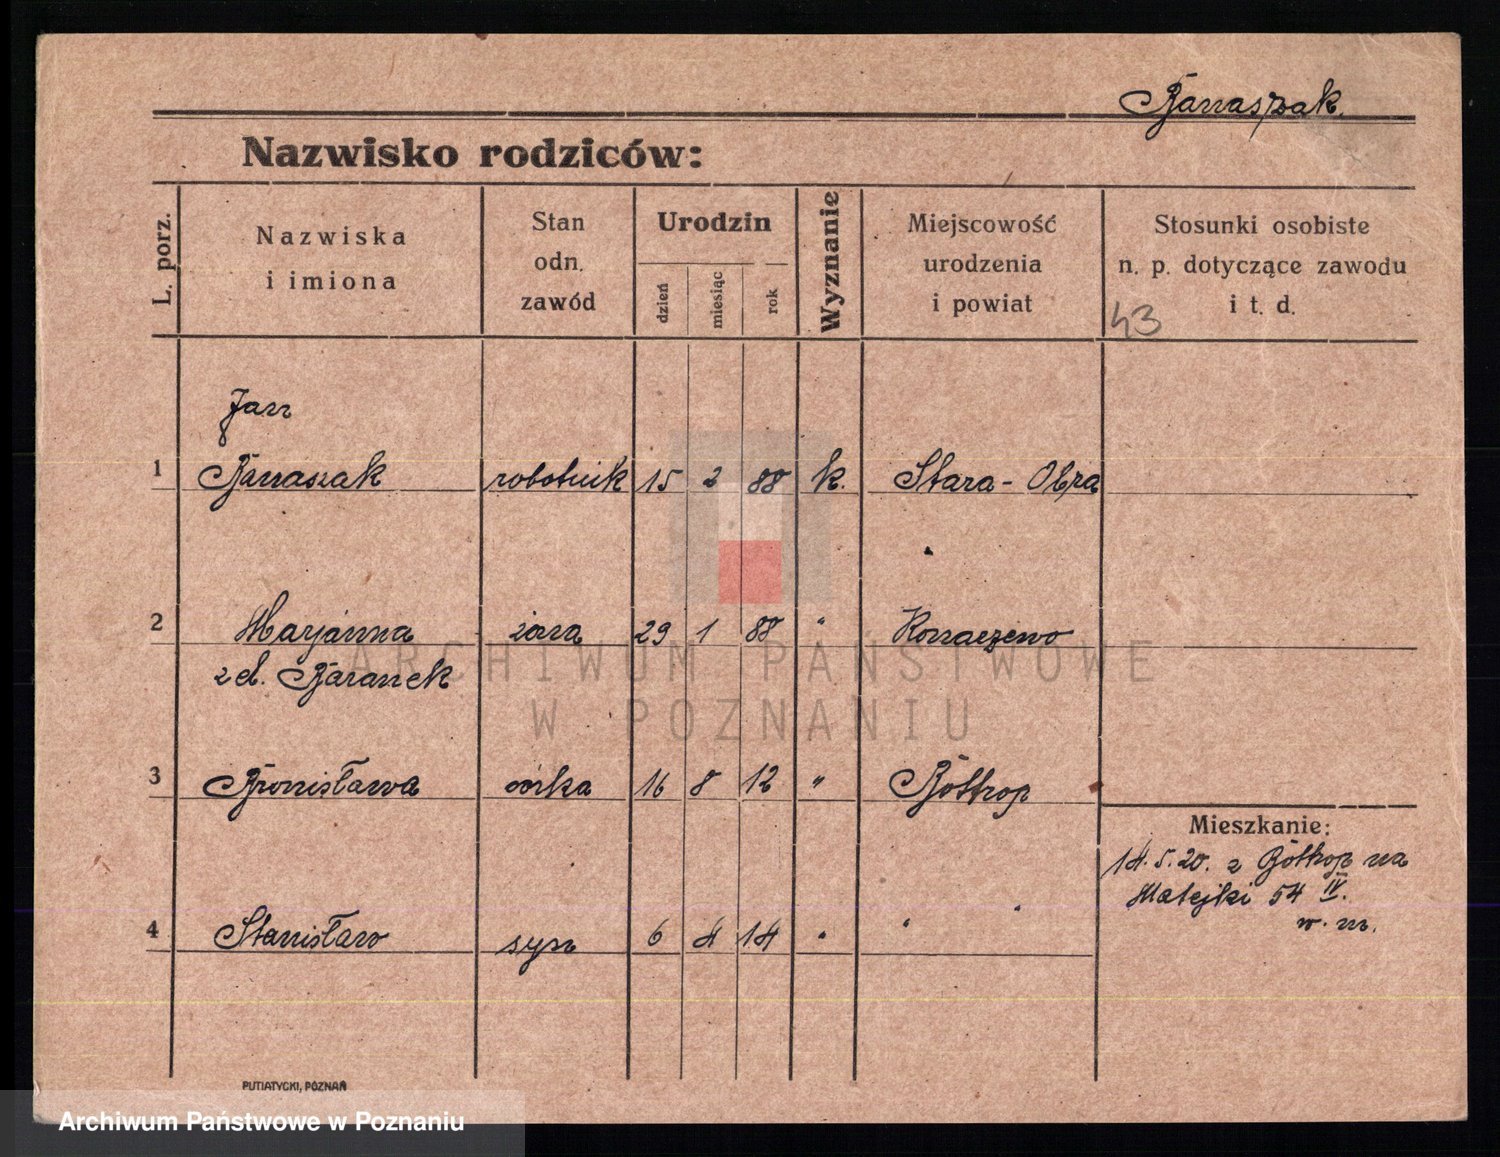 Banaszak
Nazwisko rodziców:
L. porz.
Nazwiska
i imiona
Stan
odn.
zawód
Urodzin
dzień
miesiąc
rok
Wyznanie
Miejscowość
urodzenia
i powiat
Stosunki osobiste
n. p. dotyczące zawodu
i t. d.
43
Jan
1 Banaszak robotnik 15 2 88 k. Stara - Obra
2 Maryanna żona 29 1 88 " Konaczewo
z d. Baranek
3 Bronisława córka 16 8 12 " Bottrop
Mieszkanie:
14.5.20. z Bottrop na
Matejki 54 IV.
w. m.
4 Stanisław syn 6 4 14 " " "
PUTIATYCKI, POZNAŃ
ARCHIWUM PAŃSTWOWE
W POZNANIU
Archiwum Państwowe w Poznaniu